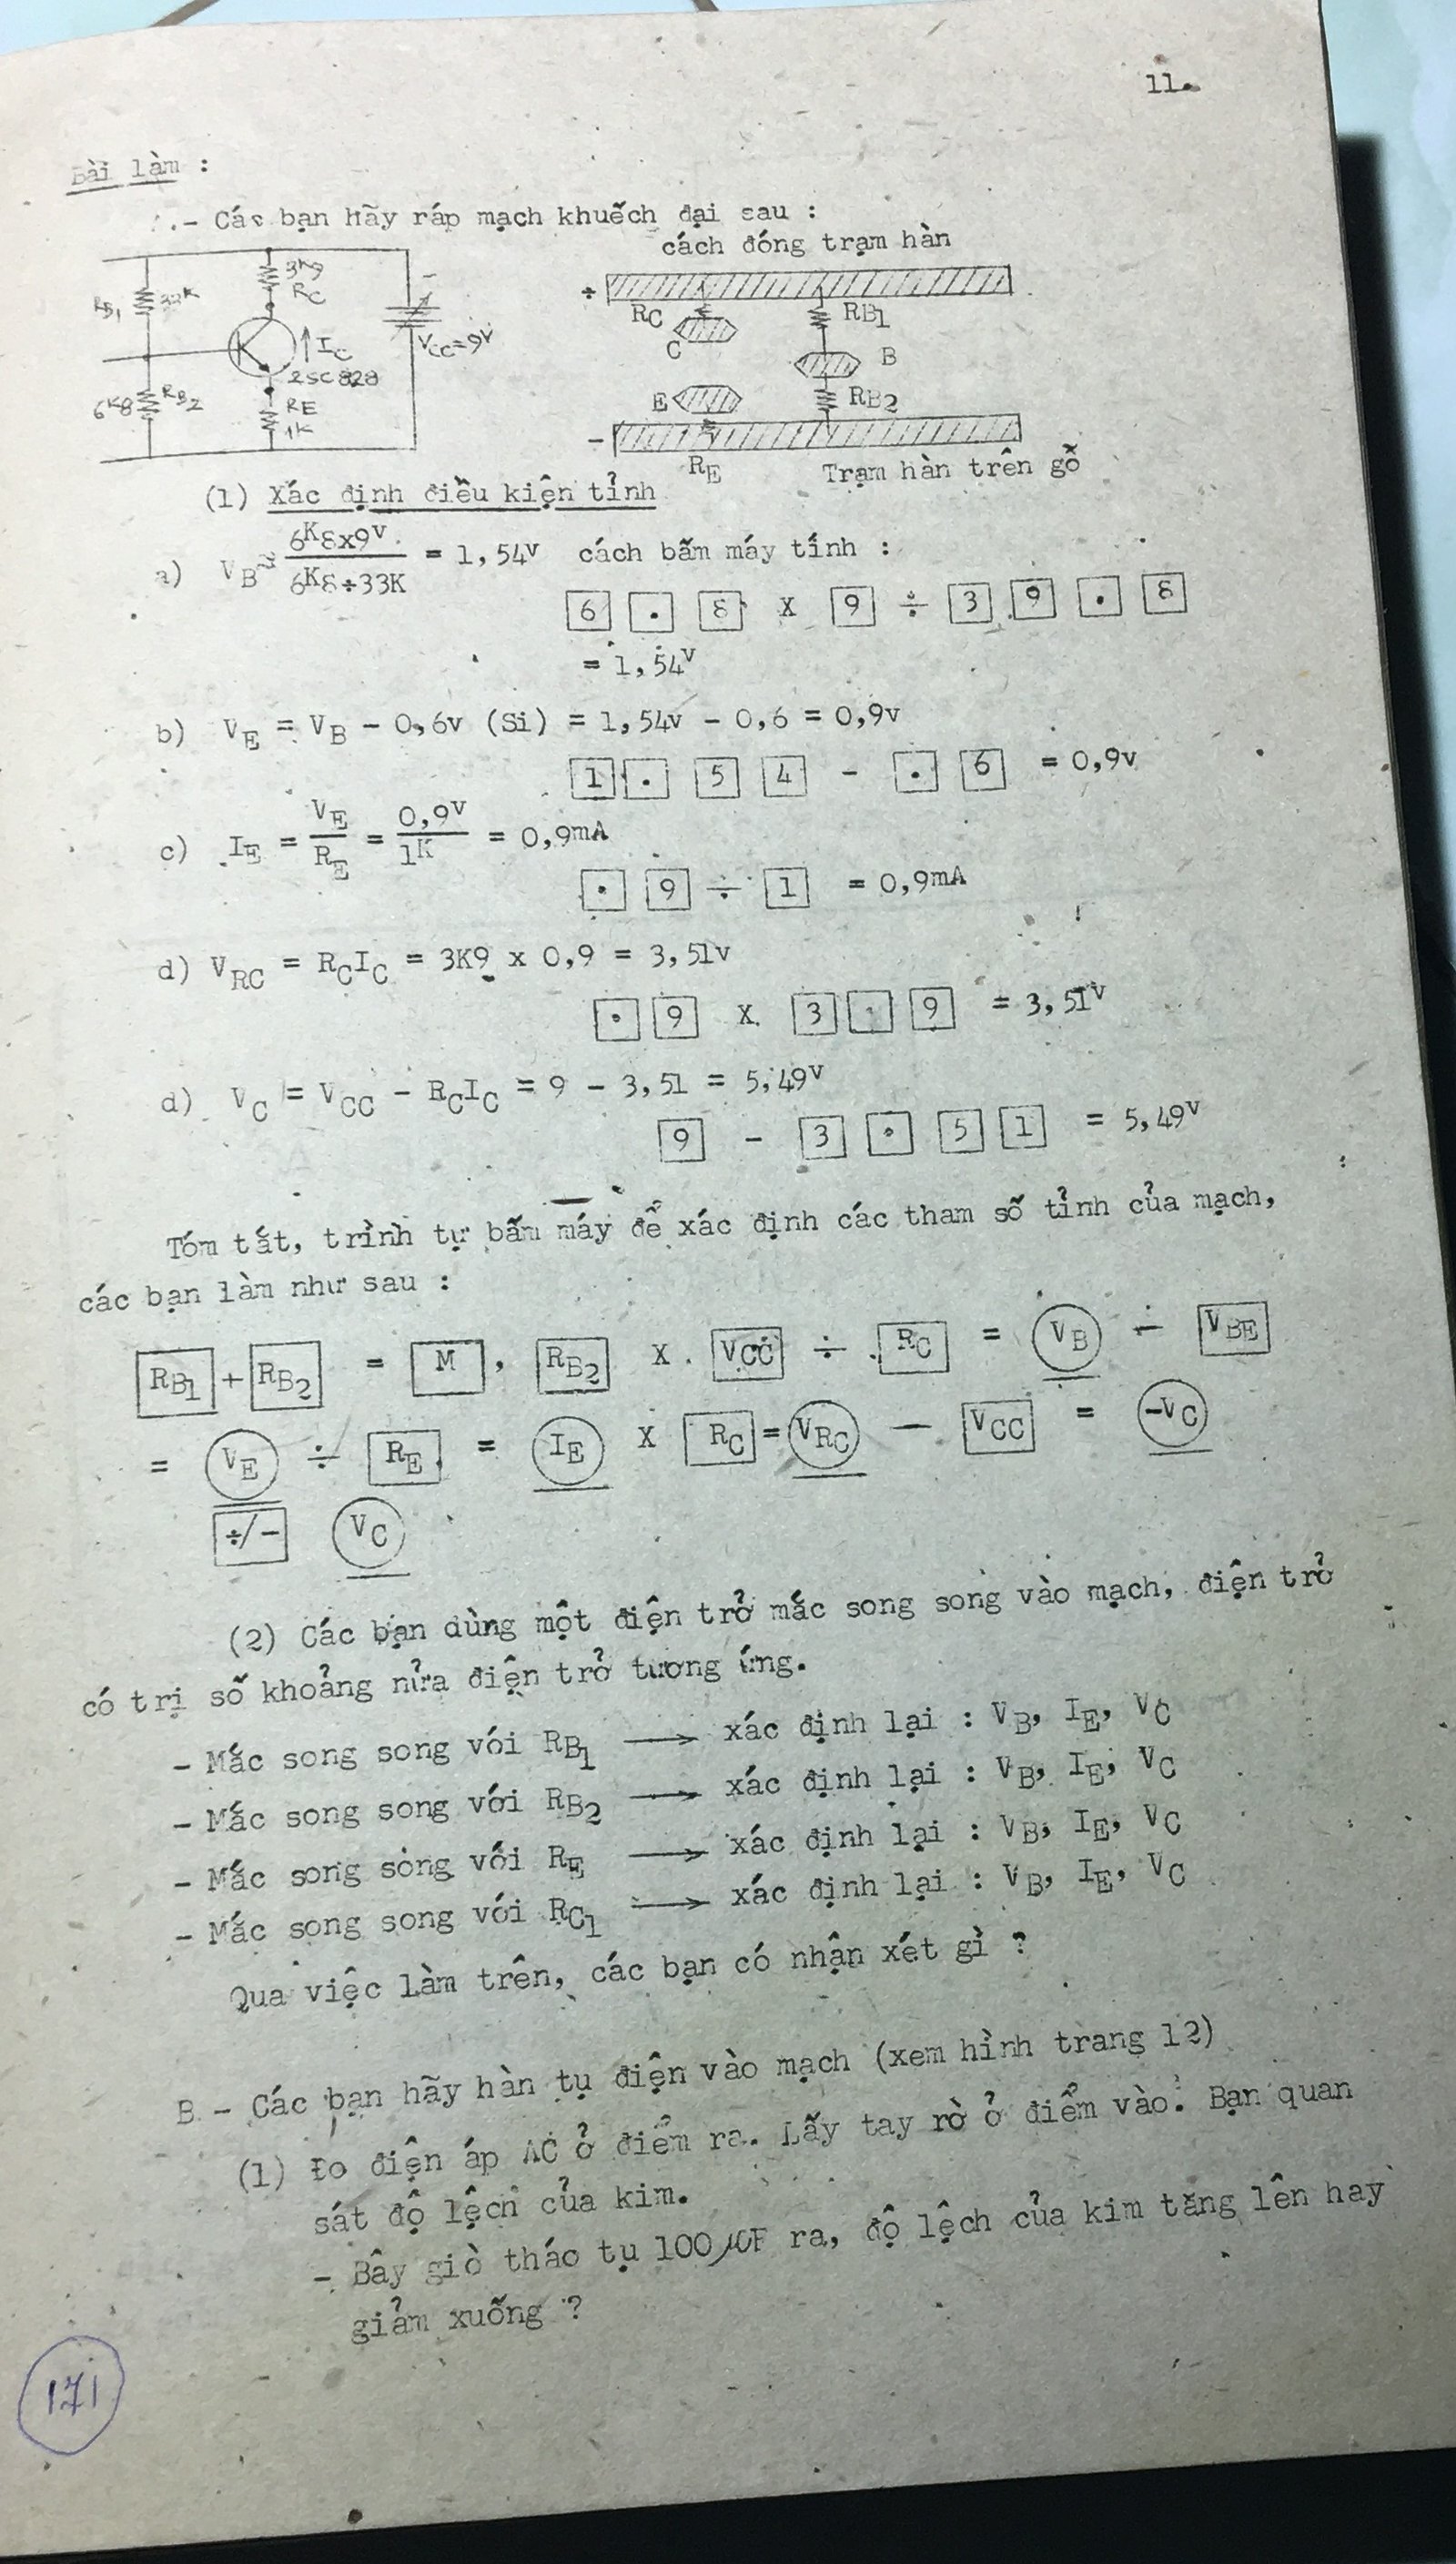 11.
Bài làm :
.- Các bạn hãy ráp mạch khuếch đại sau :
cách đóng trạm hàn
RB1 33K
3K9
RC
IC
2SC828
VCC=9V
6K8 RB2
RE
1K
+
RC
RB1
C
B
E
RB2
-
RE
Trạm hàn trên gỗ
(1) Xác định điều kiện tỉnh
a) VB ≈ 6K8x9V / 6K8÷33K = 1,54V cách bấm máy tính :
6 . 8 X 9 ÷ 3 9 . 8
= 1,54V
b) VE = VB - 0,6v (Si) = 1,54v - 0,6 = 0,9v
1 . 5 4 - . 6 = 0,9v
c) IE = VE / RE = 0,9V / 1K = 0,9mA
. 9 ÷ 1 = 0,9mA
d) VRC = RCIC = 3K9 x 0,9 = 3,51v
. 9 X 3 . 9 = 3,51V
d) VC = VCC - RCIC = 9 - 3,51 = 5,49V
9 - 3 . 5 1 = 5,49V
Tóm tắt, trình tự bấm máy để xác định các tham số tỉnh của mạch,
các bạn làm như sau :
RB1 + RB2 = M , RB2 X VCC ÷ RC = VB - VBE
= VE ÷ RE = IE X RC = VRC - VCC = -VC
÷/- VC
(2) Các bạn dùng một điện trở mắc song song vào mạch, điện trở
có trị số khoảng nửa điện trở tương ứng.
- Mắc song song với RB1 → xác định lại : VB, IE, VC
- Mắc song song với RB2 → xác định lại : VB, IE, VC
- Mắc song song với RE → xác định lại : VB, IE, VC
- Mắc song song với RC1 → xác định lại : VB, IE, VC
Qua việc làm trên, các bạn có nhận xét gì ?
B - Các bạn hãy hàn tụ điện vào mạch (xem hình trang 12)
(1) Đo điện áp AC ở điểm ra. Lấy tay rờ ở điểm vào. Bạn quan
sát độ lệch của kim.
- Bây giờ tháo tụ 100µF ra, độ lệch của kim tăng lên hay
giảm xuống ?
171